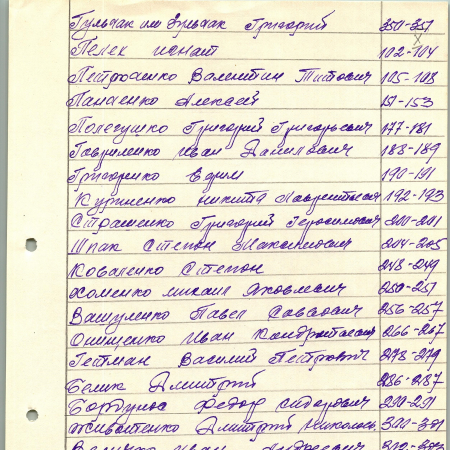 Гульдак или Зульдак Григорий 350-351
Пелех Игнат 102-104
Петроченко Валентин Титович 105-108
Панченко Алексей 151-153
Полегушко Григорий Григорьевич 177-181
Гавриленко Иван Данилович 188-189
Григоренко 190-191
Никита Лаврентьевич 192-193
Страшенко Григорий Герасимович 200-201
Шпак Степан Максимович 204-205
Коваленко Степан 248-249
Хоменко Михаил Яковлевич 250-251
Вашуленко Павел Саввович 256-257
Онищенко Иван Кондратьевич 266-267
Гетман Василий Петрович 278-279
Белик Дмитрий 286-287
Федор Сидорович 290-291
Дмитрий 300-301
Иван Андреевич